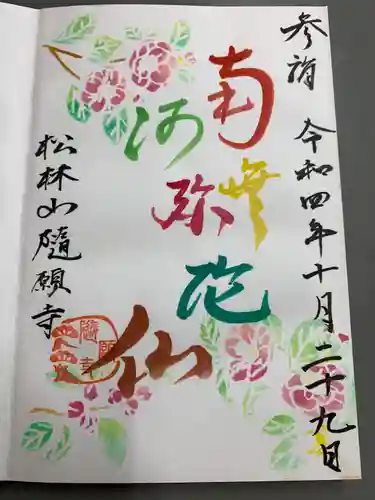 参詣 令和四年十月二十九日
南無阿弥陀仏
松林山隨願寺